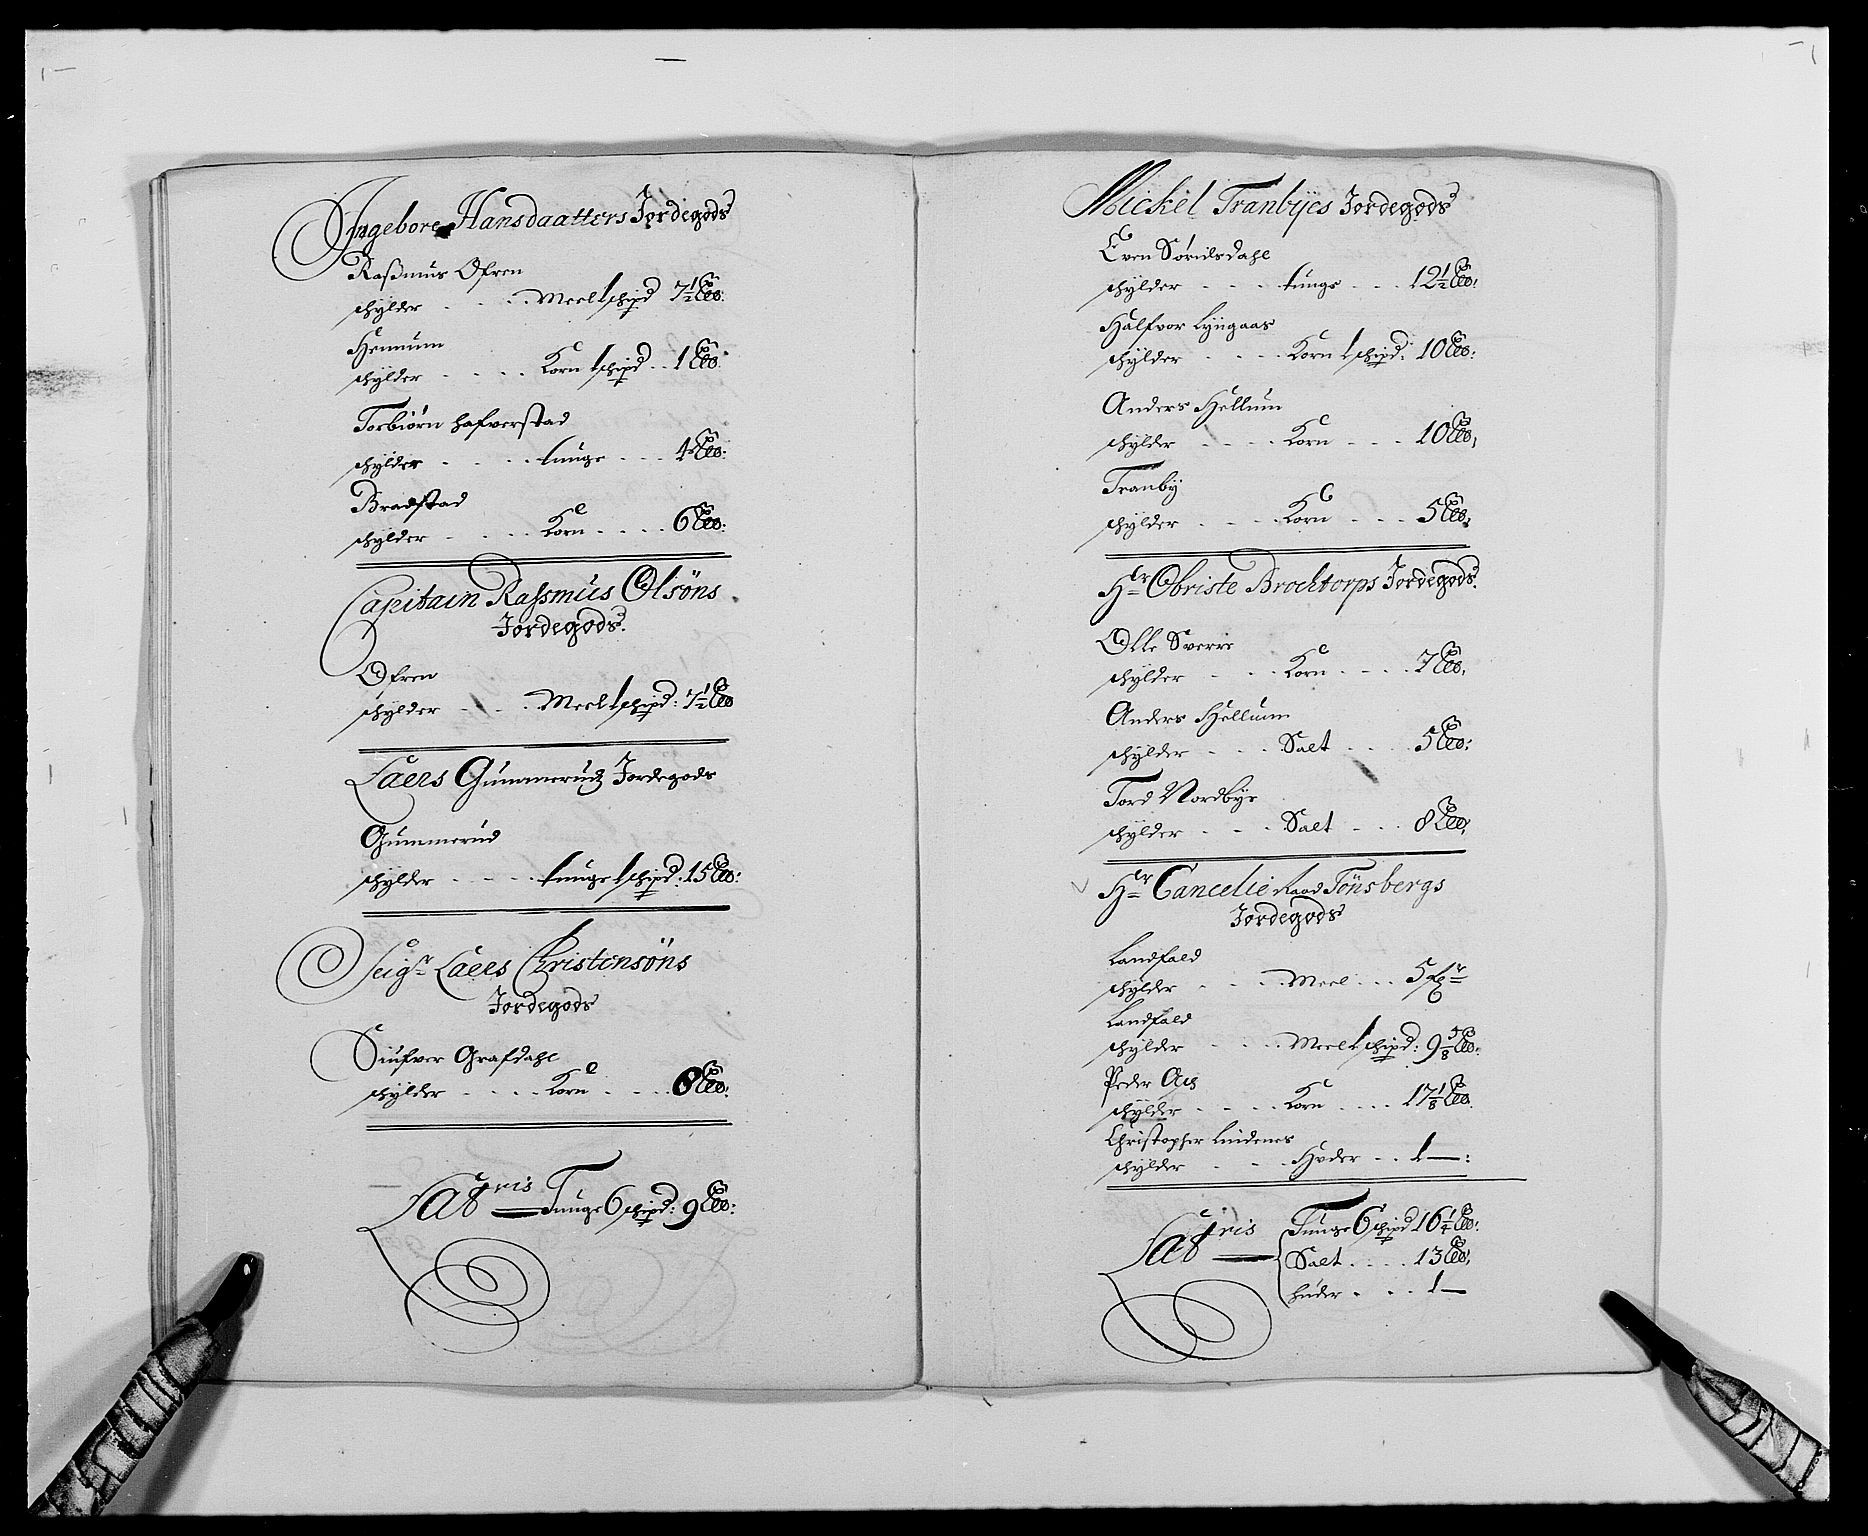 Ingebore Hansdaatters Jordegods
Rasmus Ofren
schylder - - - - Meel 1 schipd 7 1/2 Lbs:
Hennum
schylder - - - - Korn 1 schipd - - 1 Lbs:
Torbiørn hafverstad
schylder - - - - tunge - - - 4 Lbs:
Bradstad
schylder - - - - Korn - - - - 6 Lbs:
Capitain Rassmus Olsöns
Jordegods.
Ofren
schylder - - - - Meel 1 schipd: 7 1/2 Lbs
Laers Gummerudz Jordegods
Gummerud
schylder - - - - tunge 1 schipd: 15 Lbs:
Seigr Laers Christensöns
Jordegods
Siufver Grafdahl
schylder - - - - Korn - - - - 8 Lbs:
Latris Tunge 6 schipd: 9 Lbs:
Mickel Tranbyes Jordegods
Even Sørildsdahl
schylder - - - - tunge - - - 12 1/2 Lbs:
Halfvor Lyngaas
schylder - - - - Korn 1 schipd: 10 Lbs:
Anders Hellum
schylder - - - - Korn - - - 10 Lbs;
Tranby
schylder - - - - Korn - - - 5 Lbs:
Hr Obriste Brochtorps Jordegods.
Olle Sverre
schylder - - - Korn - - - - 7 Lbs.
Anders Hellum
schylder - - - Salt - - - - 5 Lbs:
Tord Nordbye
schylder - - - Salt - - - 8 Lbs,
Hr Cancelie Raad Tönsbergs
Jordegods
Landfald
schylder - - - - Meel - - - 5
Landfald
schylder - - - - Meel 1 schipd: 9 5/8 Lbs:
Peder
schylder - - - - Korn - - - - 17 1/8 Lbs.
Christopher Lindenes
schylder - - - - Huder - - 1 —:
Latris Tunge 6 schipd 16 1/4 Lbs:
Salt - - - - 13 Lbs,
huder - - - 1 —